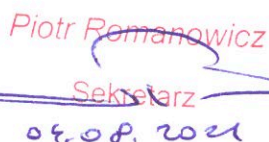 Piotr Romanowicz
Sekretarz
04.08.2021